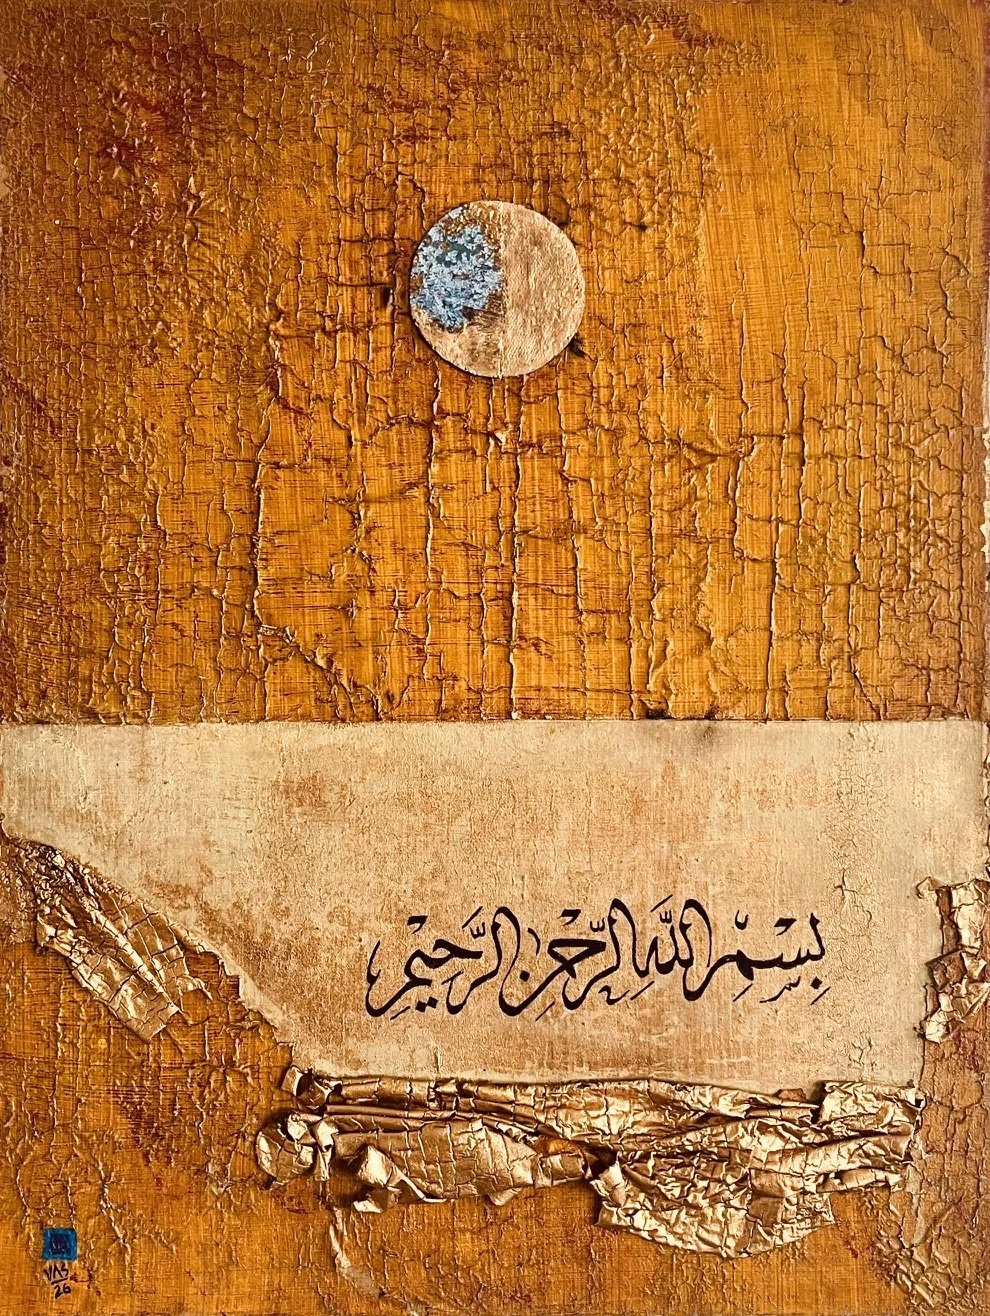 بِسْمِ اللَّهِ الرَّحْمَنِ الرَّحِيمِ
VAS
26